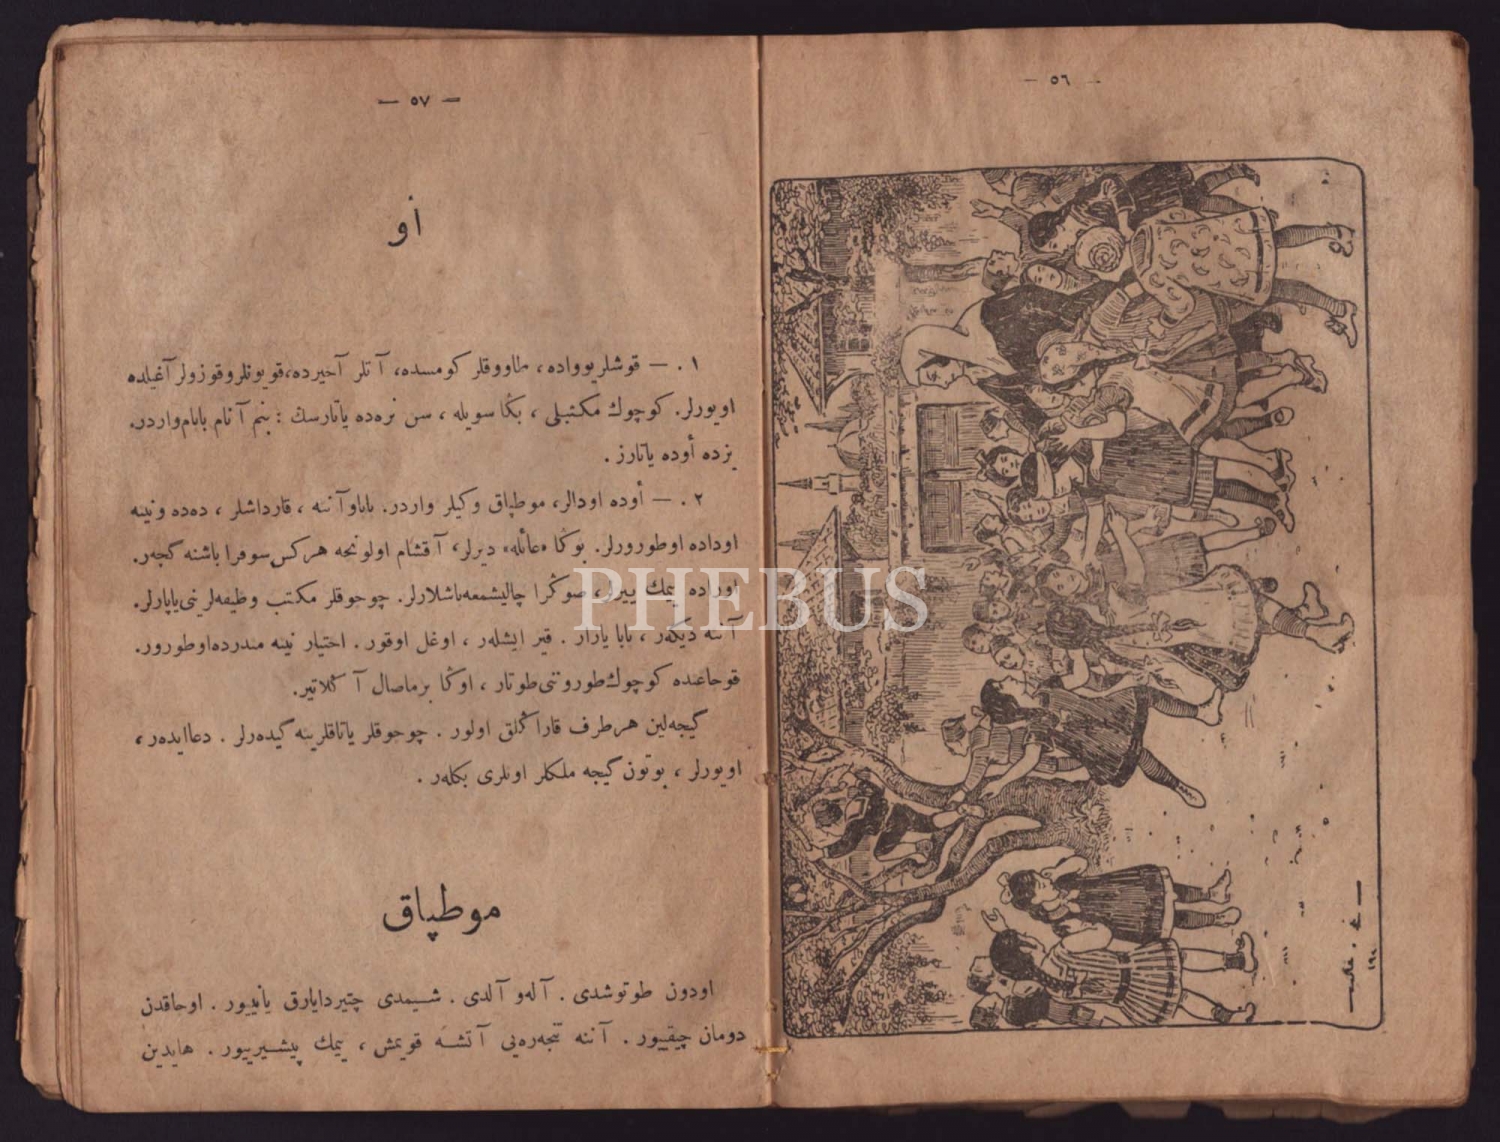 — ٥٦ —
— ٥٧ —
أو
١ . — قوشلر يوواده ، طاووقلر كومسده ، آتلر آخيرده ، قويونلر و قوزولر آغيلده
اويورلر. كوچوك مكتبلى ، بكا سويله ، سن نره‌ده ياتارسك : بنم آنام بابام واردر.
بزده أوده ياتارز .
٢ . — أوده اودالر، موطپاق و كيلر واردر. بابا و آننه ، قارداشلر ، ده‌ده و نينه
اوداده اوطورورلر. بوڭا «عائله» ديرلر، آقشام اولونجه هركس سوفرا باشنه گچه‌ر.
اوراده يمك يير، صوڭرا چاليشمغه باشلارلر. چوجوقلر مكتب وظيفه‌لرينى ياپارلر.
آننه ديكه‌ر ، بابا يازار . قيز ايشله‌ر ، اوغل اوقور . اختيار نينه مندرده اوطورور.
قوجاغنده كوچوك طوروننى طوتار ، اوڭا بر ماصال آڭلاتير.
گيجه‌لين هر طرف قاراڭلق اولور . چوجوقلر ياتاقلرينه گيده‌رلر . دعا ايده‌ر ،
اويورلر ، بوتون گيجه ملكلر اونلرى بكله‌ر .
موطپاق
اودون طوتوشدى . آله‌و آلدى . شيمدى چتيردايارق يانييور . اوجاقدن
دومان چيقييور . آننه تنجه‌ره‌يى آتشه قويمش ، يمك پيشيرييور . هايدين
PHEBUS